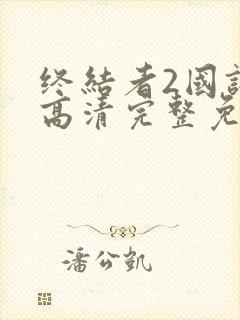 终结者2國
高清完整免
潘公凯